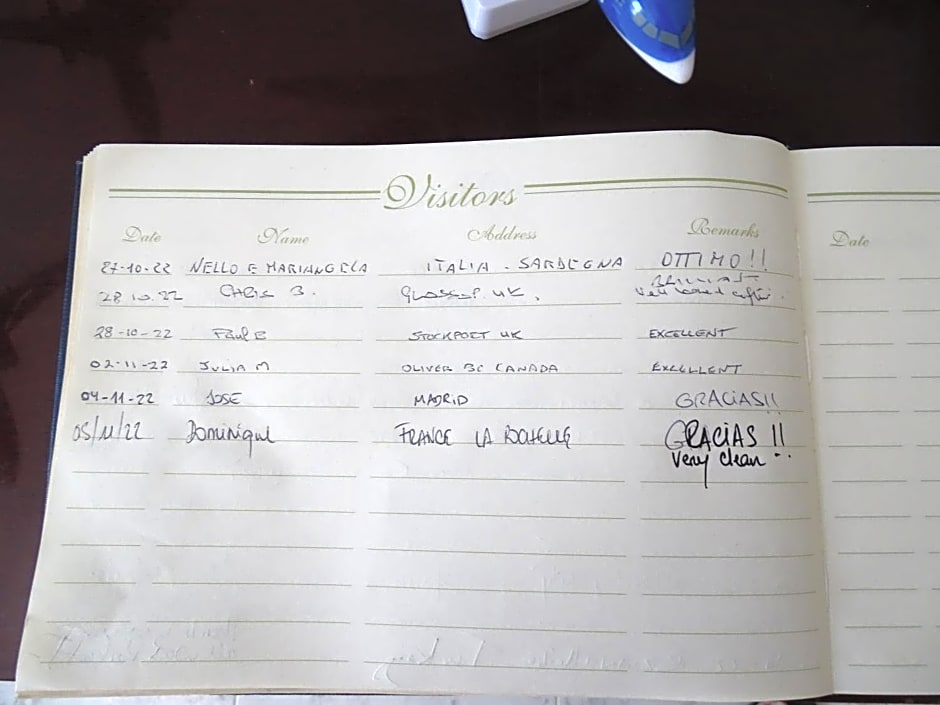 Visitors
Date Name Address Remarks Date
27-10-22 NELLO E MARIANGELA ITALIA - SARDEGNA OTTIMO!!
28.10.22 CHRIS B. GLOSSOP UK. BRILLIANT
Well looked after.
28-10-22 Paul B STOCKPORT UK EXCELLENT
02-11-22 JULIA M OLIVER BC CANADA EXCELLENT
04-11-22 JOSE MADRID GRACIAS!!
05/11/22 Dominique FRANCE LA ROCHELLE GRACIAS !!
Very clean